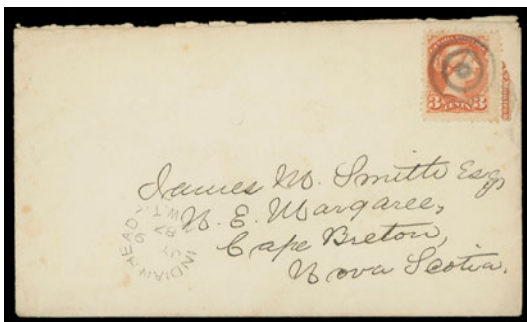 3 CENTS 3
James W. Smith Esq
N. E. Margaree,
Cape Breton,
Nova Scotia.
INDIAN HEAD
JY 9
87